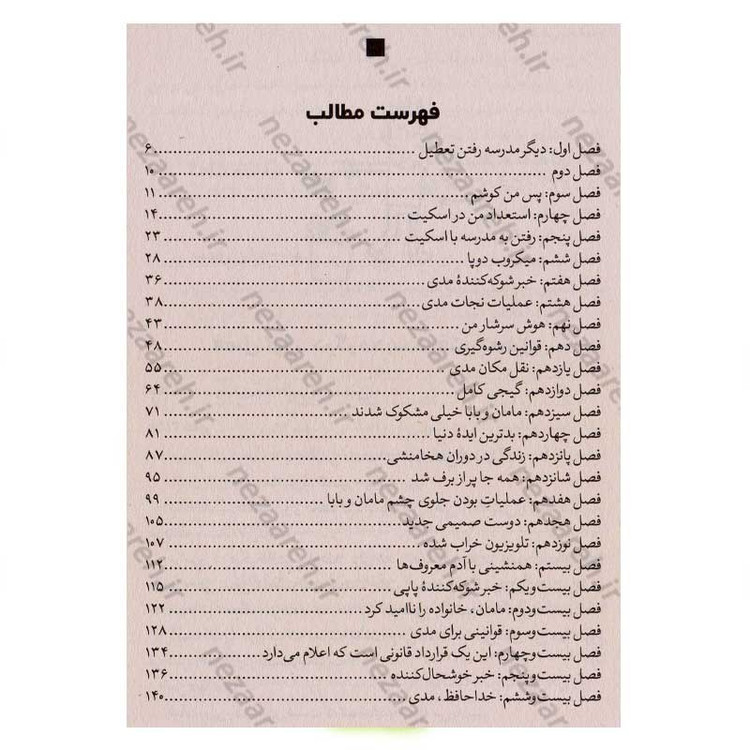 فهرست مطالب
فصل اول: دیگر مدرسه رفتن تعطیل ........ ۶
فصل دوم ........ ۱۰
فصل سوم: پس من کوشم ........ ۱۱
فصل چهارم: استعداد من در اسکیت ........ ۱۴
فصل پنجم: رفتن به مدرسه با اسکیت ........ ۲۳
فصل ششم: میکروب دوپا ........ ۲۸
فصل هفتم: خبر شوکه‌کنندهٔ مدی ........ ۳۶
فصل هشتم: عملیات نجات مدی ........ ۳۸
فصل نهم: هوش سرشار من ........ ۴۳
فصل دهم: قوانین رشوه‌گیری ........ ۴۸
فصل یازدهم: نقل مکان مدی ........ ۵۵
فصل دوازدهم: گیجی کامل ........ ۶۴
فصل سیزدهم: مامان و بابا خیلی مشکوک شدند ........ ۷۱
فصل چهاردهم: بدترین ایدهٔ دنیا ........ ۸۱
فصل پانزدهم: زندگی در دوران هخامنشی ........ ۸۷
فصل شانزدهم: همه جا پر از برف شد ........ ۹۵
فصل هفدهم: عملیاتِ بودن جلوی چشم مامان و بابا ........ ۹۹
فصل هجدهم: دوست صمیمی جدید ........ ۱۰۵
فصل نوزدهم: تلویزیون خراب شده ........ ۱۰۷
فصل بیستم: همنشینی با آدم معروف‌ها ........ ۱۱۲
فصل بیست‌ویکم: خبر شوکه‌کنندهٔ پاپی ........ ۱۱۵
فصل بیست‌ودوم: مامان، خانواده را ناامید کرد ........ ۱۲۲
فصل بیست‌وسوم: قوانینی برای مدی ........ ۱۲۸
فصل بیست‌وچهارم: این یک قرارداد قانونی است که اعلام می‌دارد ........ ۱۳۴
فصل بیست‌وپنجم: خبر خوشحال‌کننده ........ ۱۳۶
فصل بیست‌وششم: خداحافظ، مدی ........ ۱۴۰
nezaareh.ir